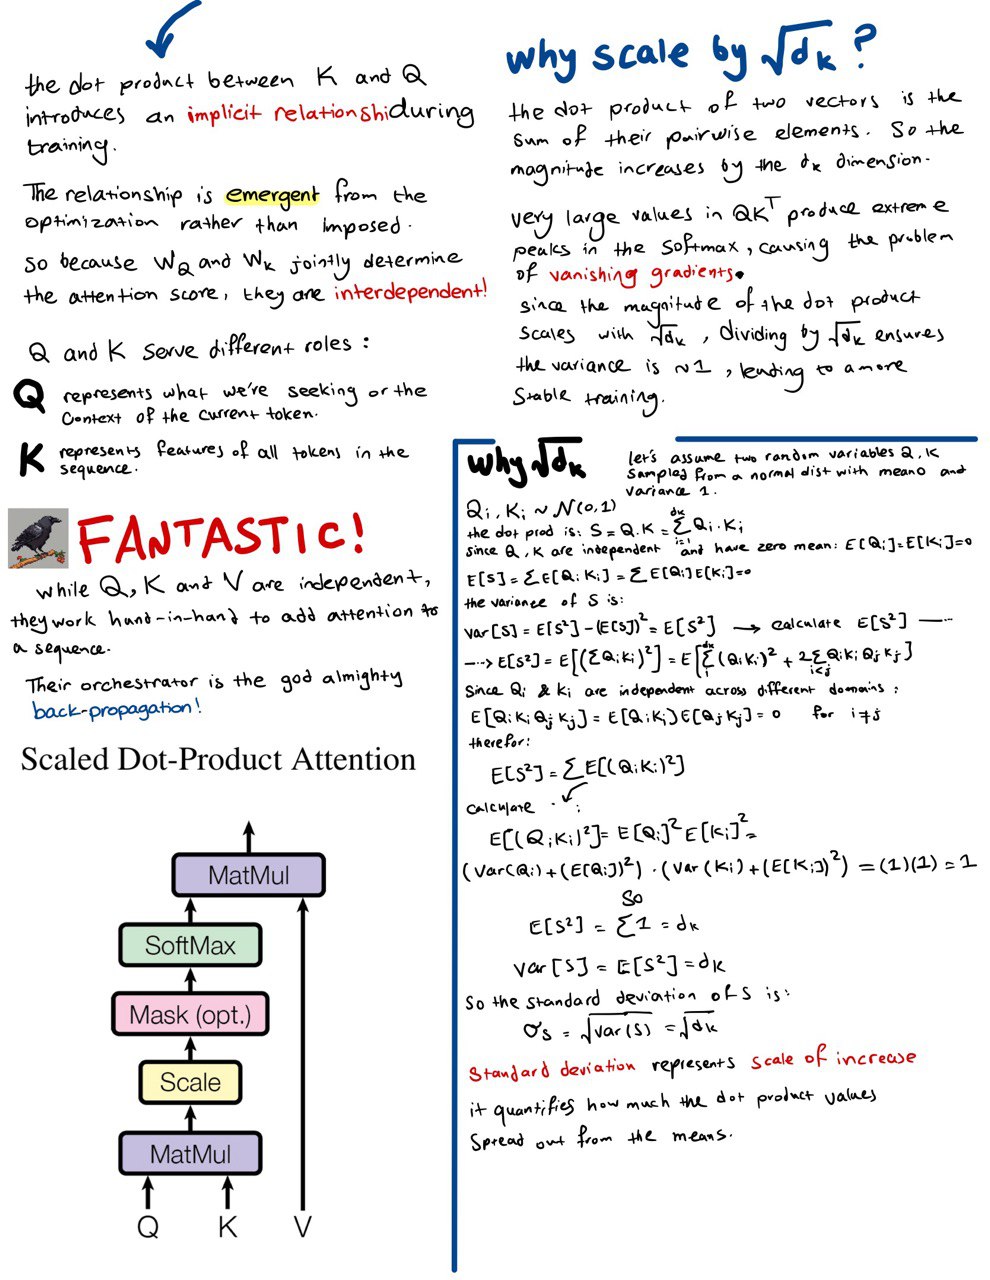 the dot product between K and Q
introduces an implicit relationshiduring
training.
The relationship is emergent from the
optimization rather than imposed.
So because WQ and WK jointly determine
the attention score, they are interdependent!
Q and K serve different roles :
Q represents what we're seeking or the
context of the current token.
K represents features of all tokens in the
sequence.
FANTASTIC!
while Q, K and V are independent,
they work hand-in-hand to add attention to
a sequence.
Their orchestrator is the god almighty
back-propagation!
Scaled Dot-Product Attention
MatMul
SoftMax
Mask (opt.)
Scale
MatMul
Q K V
why scale by √dk ?
the dot product of two vectors is the
sum of their pairwise elements. So the
magnitude increases by the dk dimension.
very large values in QK^T produce extreme
peaks in the softmax, causing the problem
of vanishing gradients.
since the magnitude of the dot product
scales with √dk , dividing by √dk ensures
the variance is ~1 , leading to a more
stable training.
why √dk
let's assume two random variables Q, K
sampled from a normal dist with mean 0 and
variance 1.
Qi, Ki ~ N(0,1)
the dot prod is: S = Q.K = Σ_{i=1}^{dk} Qi . Ki
since Q, K are independent and have zero mean: E[Qi]=E[Ki]=0
E[S] = ΣE[Qi Ki] = Σ E[Qi]E[Ki]=0
the variance of S is:
var[S] = E[S²] - (E[S])² = E[S²] → calculate E[S²]
→ E[S²] = E[(ΣQiKi)²] = E[Σ_{i}^{dk} (QiKi)² + 2Σ_{i<j} QiKi QjKj]
Since Qi & Ki are independent across different domains :
E[QiKiQjKj] = E[QiKi]E[QjKj] = 0 for i≠j
therefor:
E[S²] = ΣE[(QiKi)²]
calculate :
E[(QiKi)²] = E[Qi]² E[Ki]² =
(Var(Qi) + (E[Qi])²) . (Var(Ki) + (E[Ki])²) = (1)(1) = 1
So
E[S²] = Σ1 = dk
var[S] = E[S²] = dk
So the standard deviation of S is:
σs = √var(S) = √dk
Standard deviation represents scale of increase
it quantifies how much the dot product values
spread out from the means.